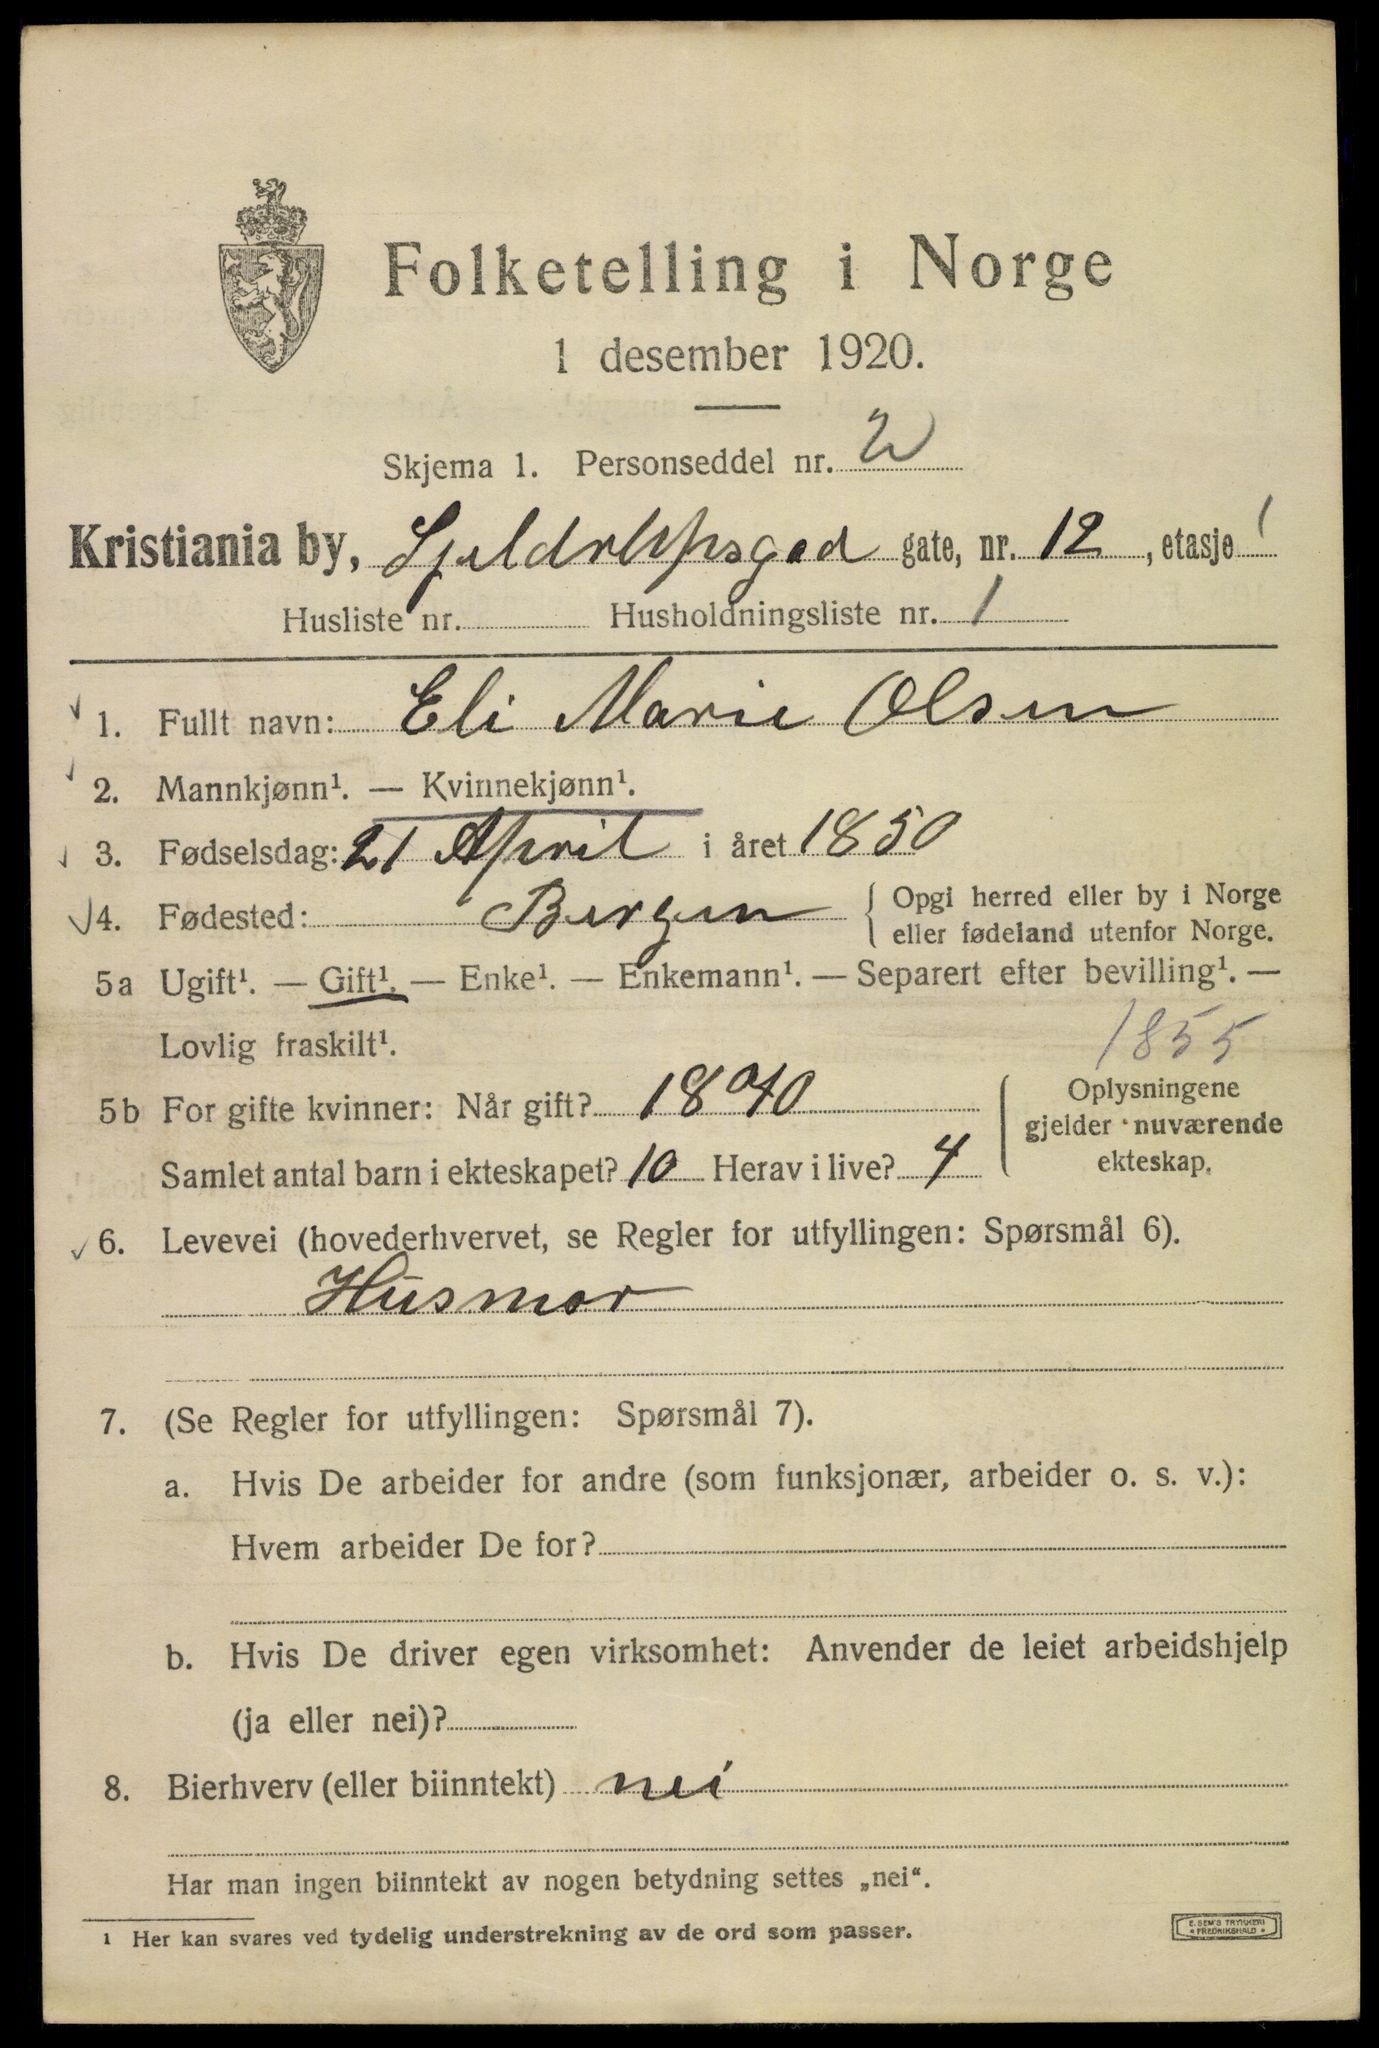 Folketelling i Norge
1 desember 1920.
Skjema 1. Personseddel nr. 2
Kristiania by, gate, nr. 12, etasje 1
Husliste nr. Husholdningsliste nr. 1
1. Fullt navn: Eli Marie Olsen
2. Mannkjønn¹. — Kvinnekjønn¹.
3. Fødselsdag: 21 April i året 1850
4. Fødested: Bergen { Opgi herred eller by i Norge
eller fødeland utenfor Norge.
5a Ugift¹. — Gift¹. — Enke¹. — Enkemann¹. — Separert efter bevilling¹. —
Lovlig fraskilt¹.
1855
5b For gifte kvinner: Når gift?
Samlet antal barn i ekteskapet? 10 Herav i live? 4
{ Oplysningene
gjelder nuværende
ekteskap.
6. Levevei (hovederhvervet, se Regler for utfyllingen: Spørsmål 6).
Husmor
7. (Se Regler for utfyllingen: Spørsmål 7).
a. Hvis De arbeider for andre (som funksjonær, arbeider o. s. v.):
Hvem arbeider De for?
b. Hvis De driver egen virksomhet: Anvender de leiet arbeidshjelp
(ja eller nei)?
8. Bierhverv (eller biinntekt) nei
Har man ingen biinntekt av nogen betydning settes „nei“.
1 Her kan svares ved tydelig understrekning av de ord som passer.
E. SEM'S TRYKKERI
* FREDRIKSHALD *